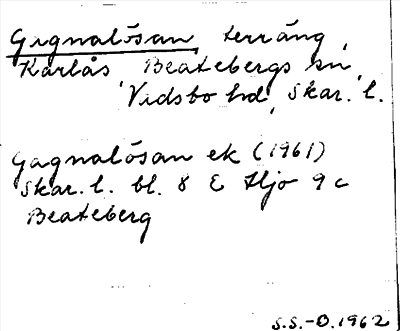 Gagnalösan, terräng,
Karlås, Beatebergs sn,
Vidsbo hd, Skar. l.
Gagnalösan ek (1961)
Skar. l. bl. 8 E Hjo 9 c
Beateberg
S.S.-O. 1962